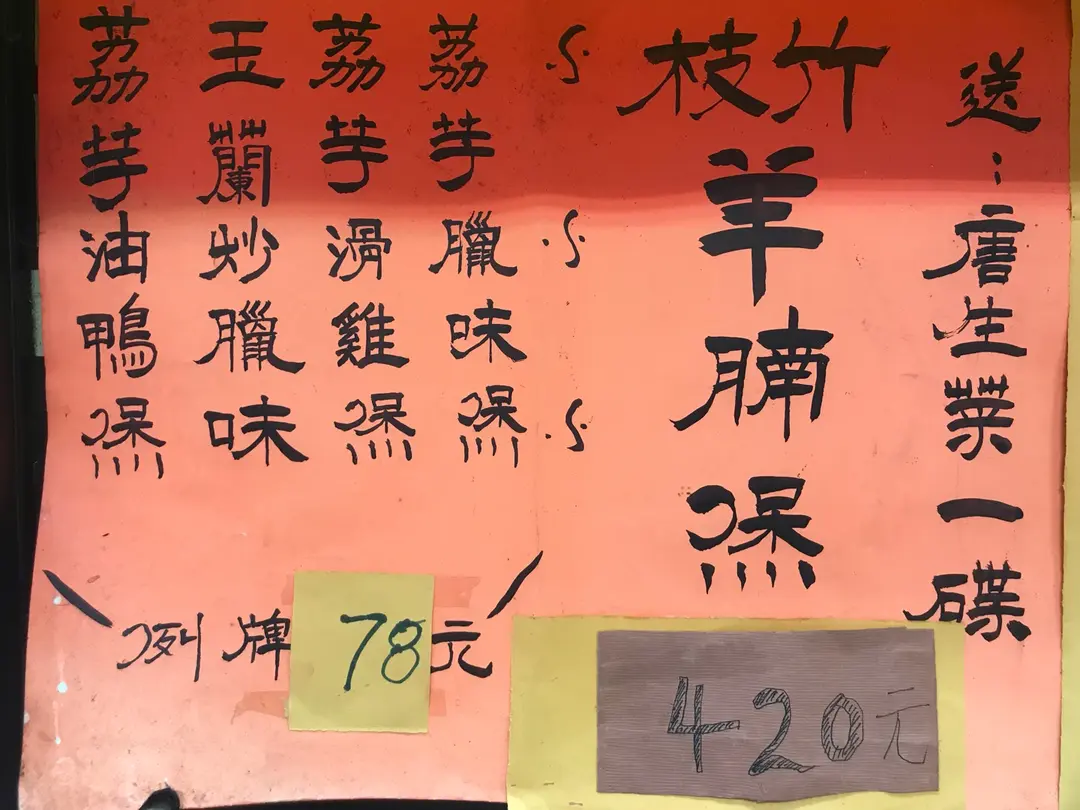 送：唐生菜一碟
竹枝羊腩煲
420元
荔芋臘味煲
荔芋滑雞煲
玉蘭炒臘味
荔芋油鴨煲
例牌78元